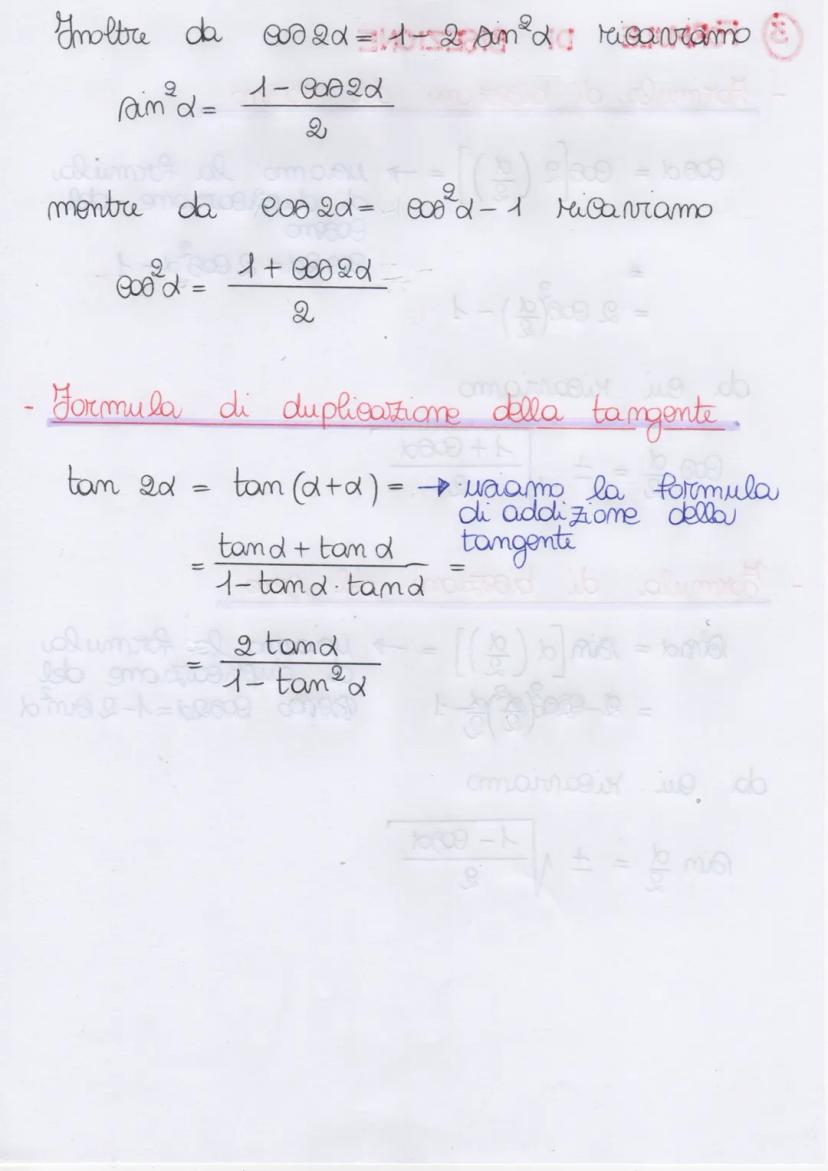 Inoltre da cos 2α = 1 - 2 sin²α ricaviamo
sin²α = (1 - cos 2α)/2
mentre da cos 2α = cos²α - 1 ricaviamo
cos²α = (1 + cos 2α)/2
- Formula di duplicazione della tangente.
tan 2α = tan (α+α) = → usiamo la formula
di addizione della
tangente
= (tan α + tan α)/(1 - tan α · tan α) =
= (2 tan α)/(1 - tan² α)